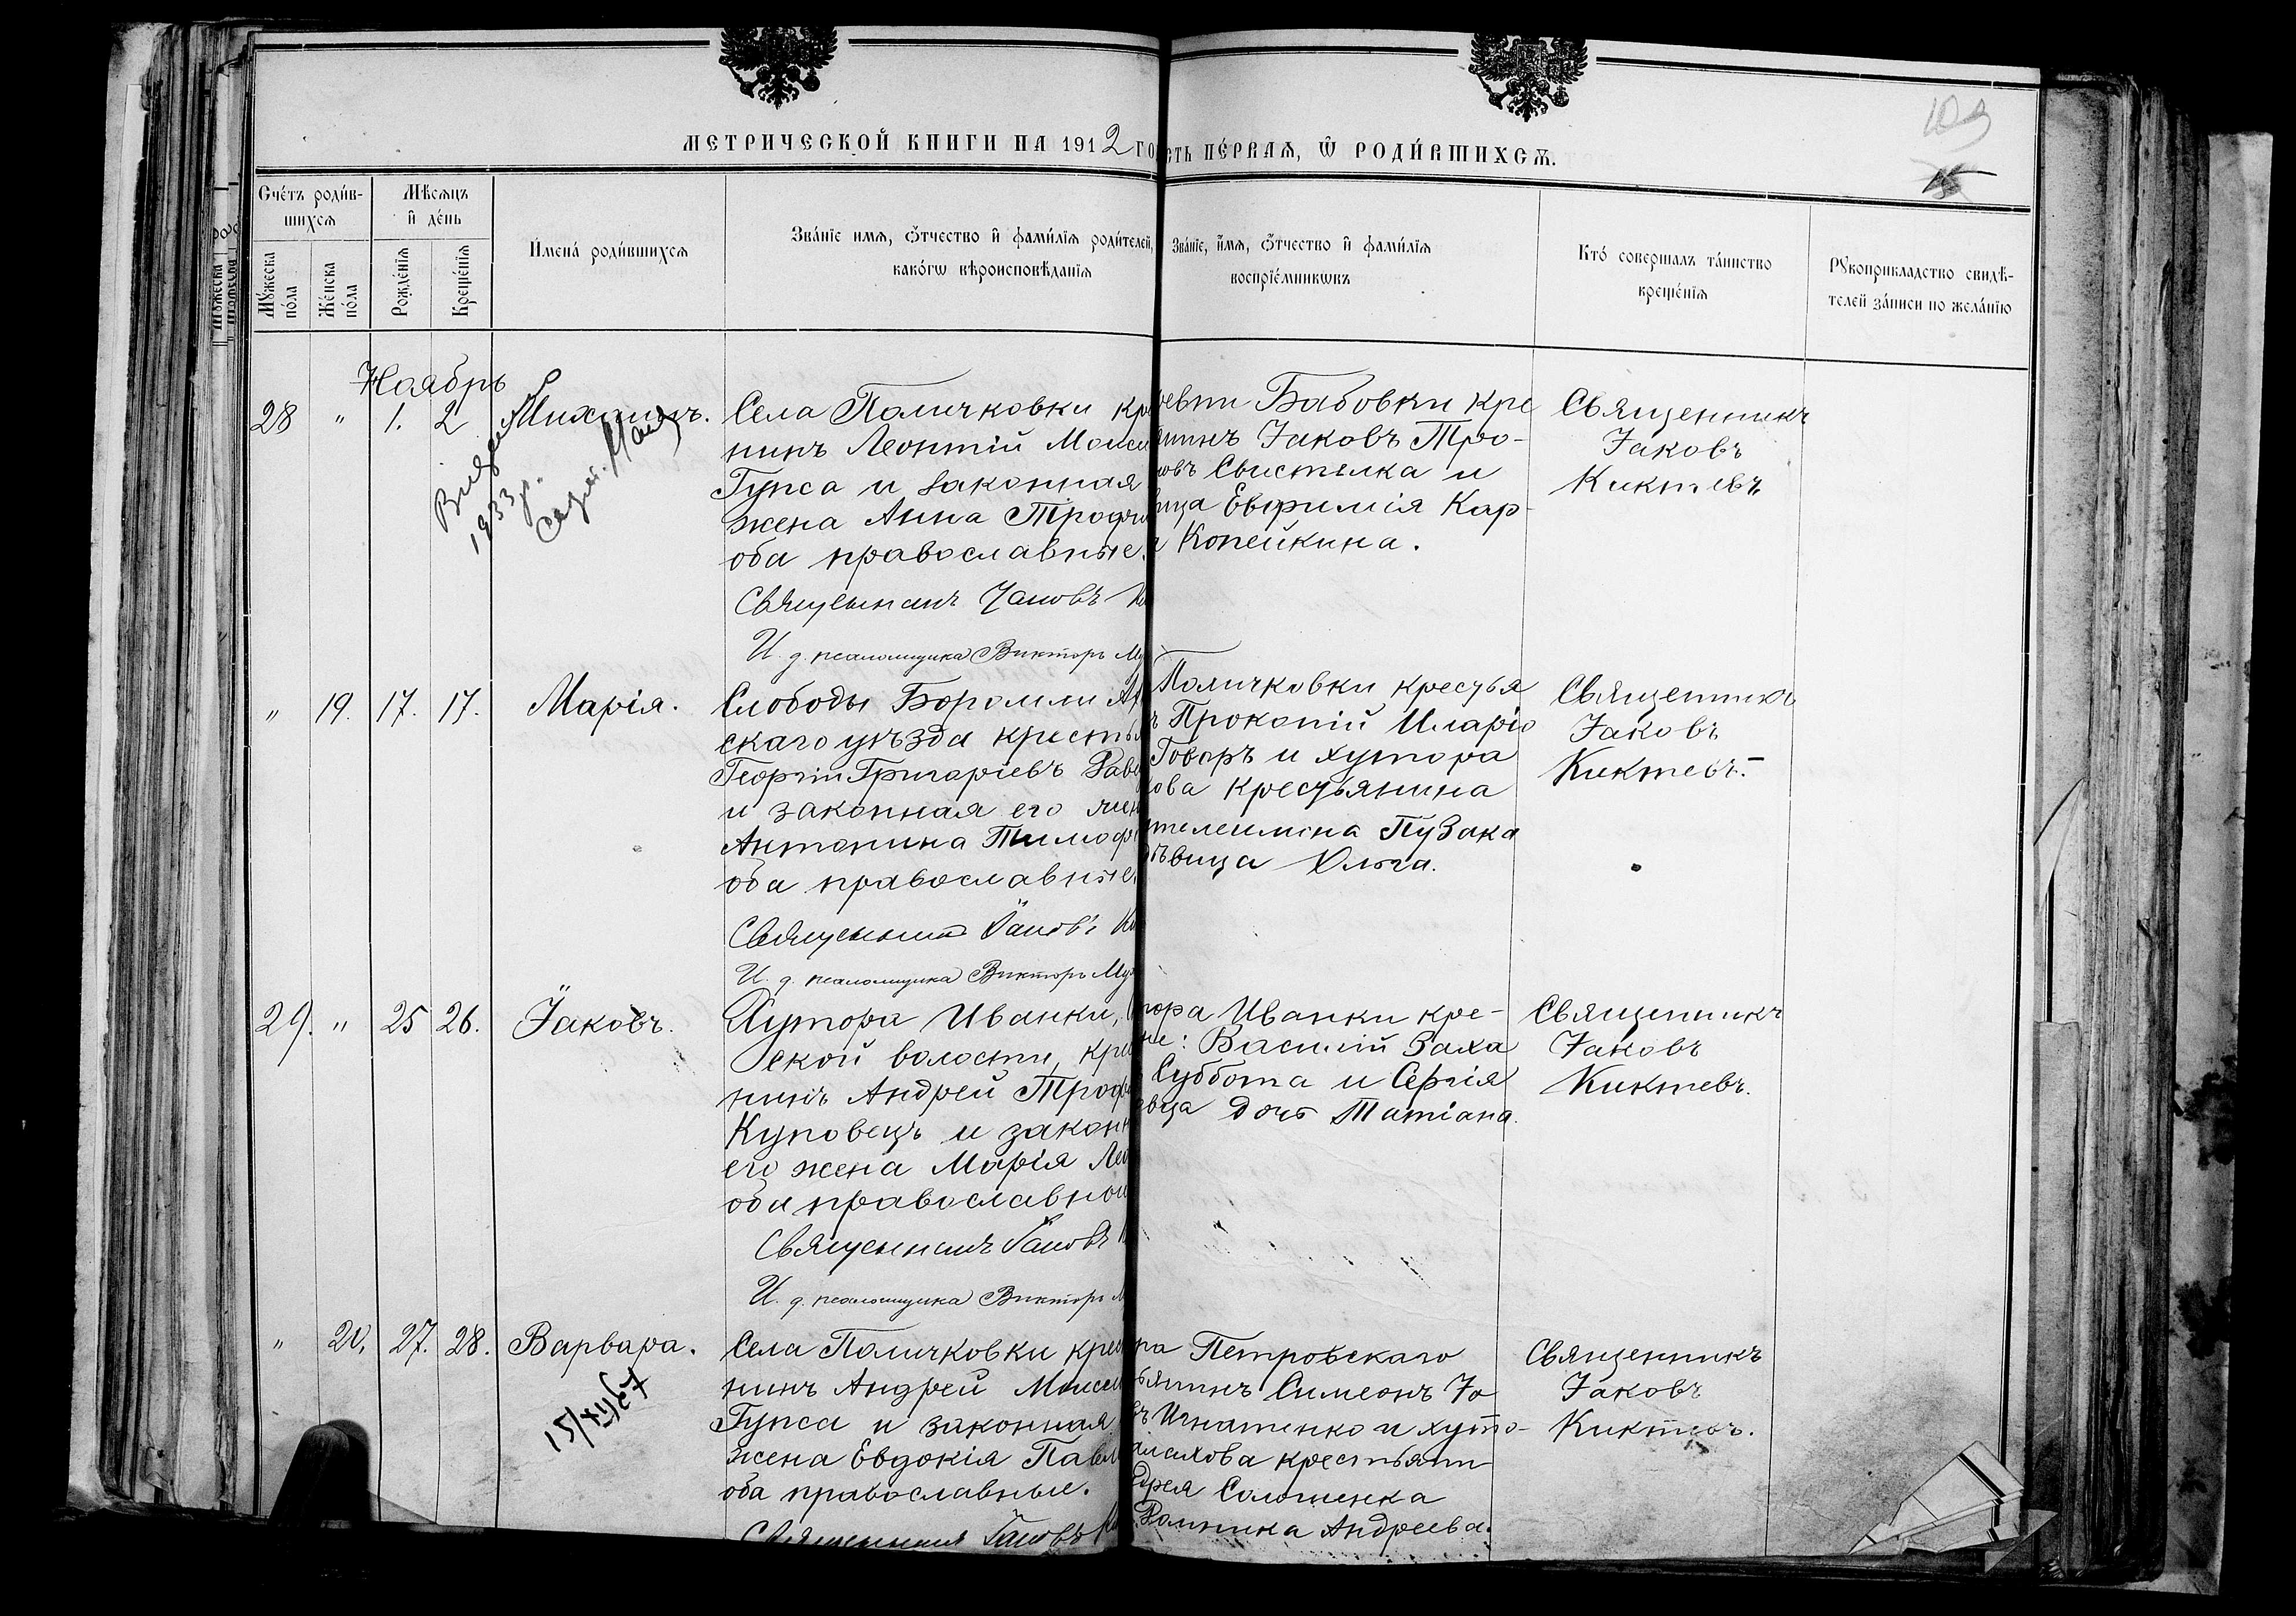 МЕТРИЧЕСКОЙ КНИГИ НА 1912 ГО
СТЬ ПЕ́РВАѦ, Ѡ РОДИ́ВШИХСѦ.
109
Сче́тъ роди́в-
шихсѧ
Мѣсѧцъ
и де́нь
Мꙋ́жеска
по́ла
Же́нска
по́ла
Рожде́нїѧ
Креще́нїѧ
Имена́ роди́вшихсѧ
Зва́нїе имѧ, ѻ҆́тчество и фами́лїѧ роди́телей,
како́гѡ вѣроисповѣ́данїѧ
Зва́нїе, и҆́мѧ, ѻ҆́тчество и фами́лїѧ
воспрїе́мникѡвъ
Кто́ соверша́лъ та́инство
креще́нїѧ
Рꙋкоприкладство свидѣ́-
телей за́писи по жела́нїю
Ноябрь
28 " 1. 2 Михаилъ.
1933 г.
Села Поличковки кре
нинъ Леонтій Моисе
Гупса и законная
жена Анна Трофи
оба православные.
Священникъ Іаковъ К
И. д. псаломщика Викторъ Му
ревни Бабовки кре
нинъ Іаковъ Тро-
овъ Свистылка и
вица Евфимія Кар-
Копейкина.
Священникъ
Іаковъ
Киктевъ
" 19. 17. 17. Марія.
Слободы Боромли Ах
скаго уѣзда кресть
Георгій Григоріевъ Рав
и законная его жен
Антонина Тимоф
оба православные.
Священникъ Іаковъ К
И. д. псаломщика Викторъ Му
Поличковки крестья
ъ Прокопій Иларіо
Говоръ и хутора
кова крестьянина
нтелеимона Пузака
дѣвица Ольга.
Священникъ
Іаковъ
Киктевъ.
29. " 25 26. Іаковъ.
Хутора Иванки,
ской волости, кре
нинъ Андрей Троф
Куповецъ и законн
его жена Марія Ле
оба православной
Священникъ Іаковъ К
И. д. псаломщика Викторъ М
тора Иванки кре-
не: Василій Заха
Суббота и Сергія
овца дочь Татіана.
Священникъ
Іаковъ
Киктевъ.
" 20. 27. 28. Варвара.
15/XII 67
Села Поличковки крес
нинъ Андрей Моисе
Гупса и законная
жена Евдокія Павл
оба православные.
Священникъ Іаковъ К
ра Петровскаго
ьянинъ Симеонъ Іо
въ Игнатенко и хуто-
алахова крестьяни
дрея Солошенка
Андреева.
Священникъ
Іаковъ
Киктевъ.